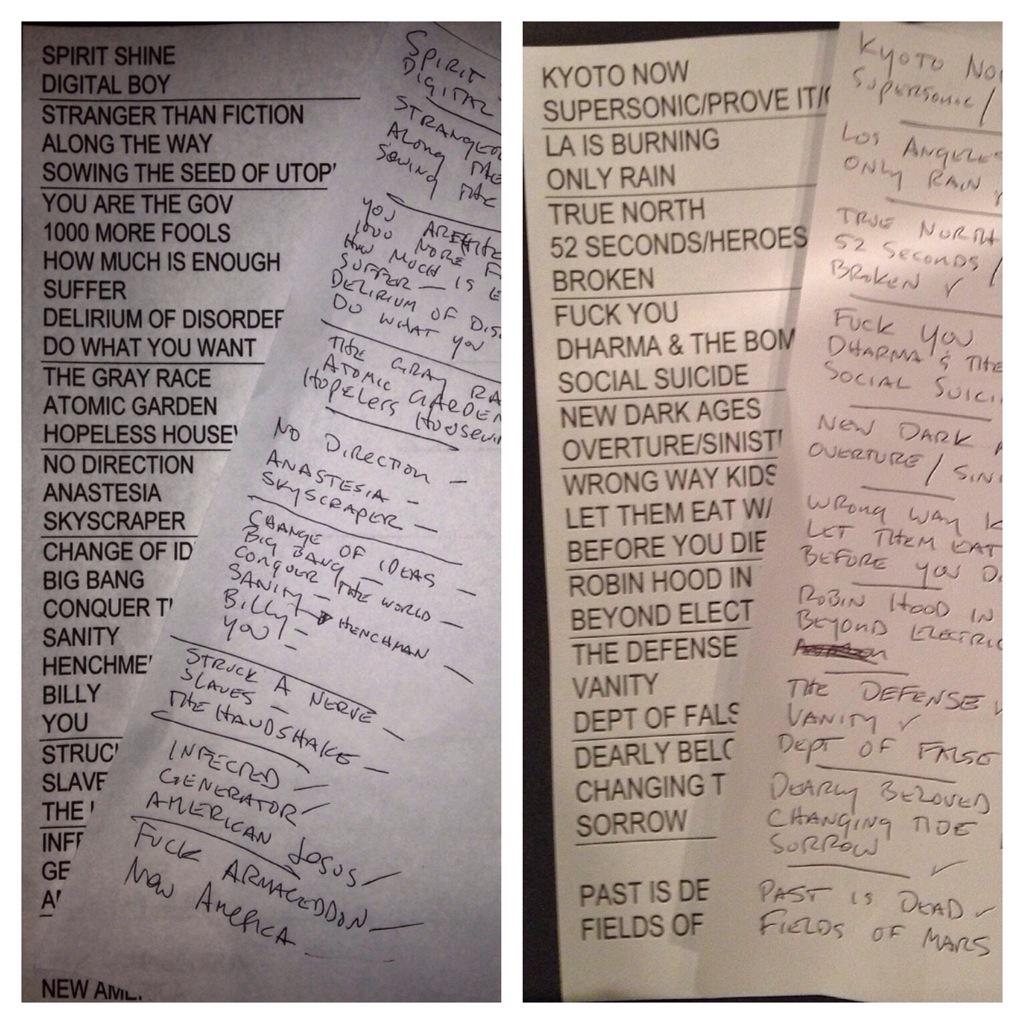 SPIRIT SHINE
DIGITAL BOY
STRANGER THAN FICTION
ALONG THE WAY
SOWING THE SEED OF UTOP
YOU ARE THE GOV
1000 MORE FOOLS
HOW MUCH IS ENOUGH
SUFFER
DELIRIUM OF DISORDER
DO WHAT YOU WANT
THE GRAY RACE
ATOMIC GARDEN
HOPELESS HOUSEW
NO DIRECTION
ANASTESIA
SKYSCRAPER
CHANGE OF ID
BIG BANG
CONQUER T
SANITY
HENCHME
BILLY
YOU
STRUC
SLAVE
THE
INF
GE
A
NEW AME
SPIRIT
DIGITAL
STRANGER
ALONG THE
SOWING THE
YOU ARE THE
1000 MORE F
HOW MUCH IS E
SUFFER
DELIRIUM OF DIS
DO WHAT YOU
THE GRAY RA
ATOMIC GARDEN
HOPELESS HOUSEWI
NO DIRECTION –
ANASTESIA –
SKYSCRAPER –
CHANGE OF IDEAS
BIG BANG –
CONQUER THE WORLD –
SANITY HENCHMAN –
BILLY –
YOU! –
STRUCK A NERVE –
SLAVES –
THE HANDSHAKE –
INFECRED ✓
GENERATOR ✓
AMERICAN JESUS ✓
FUCK ARMAGEDDON –
NEW AMERICA
KYOTO NOW
SUPERSONIC/PROVE IT/
LA IS BURNING
ONLY RAIN
TRUE NORTH
52 SECONDS/HEROES
BROKEN
FUCK YOU
DHARMA & THE BOM
SOCIAL SUICIDE
NEW DARK AGES
OVERTURE/SINIST
WRONG WAY KIDS
LET THEM EAT W
BEFORE YOU DIE
ROBIN HOOD IN
BEYOND ELECT
THE DEFENSE
VANITY
DEPT OF FALS
DEARLY BELO
CHANGING T
SORROW
PAST IS DE
FIELDS OF
KYOTO NO
SUPERSONIC /
LOS ANGELES
ONLY RAIN ✓
TRUE NORTH
52 SECONDS /
BROKEN ✓
FUCK YOU
DHARMA & THE
SOCIAL SUICI
NEW DARK A
OVERTURE / SIN
WRONG WAY K
LET THEM EAT
BEFORE YOU D
ROBIN HOOD IN
BEYOND ELECTRIC
THE DEFENSE ✓
VANITY ✓
DEPT OF FALSE
DEARLY BELOVED
CHANGING TIDE
SORROW ✓
PAST IS DEAD ✓
FIELDS OF MARS